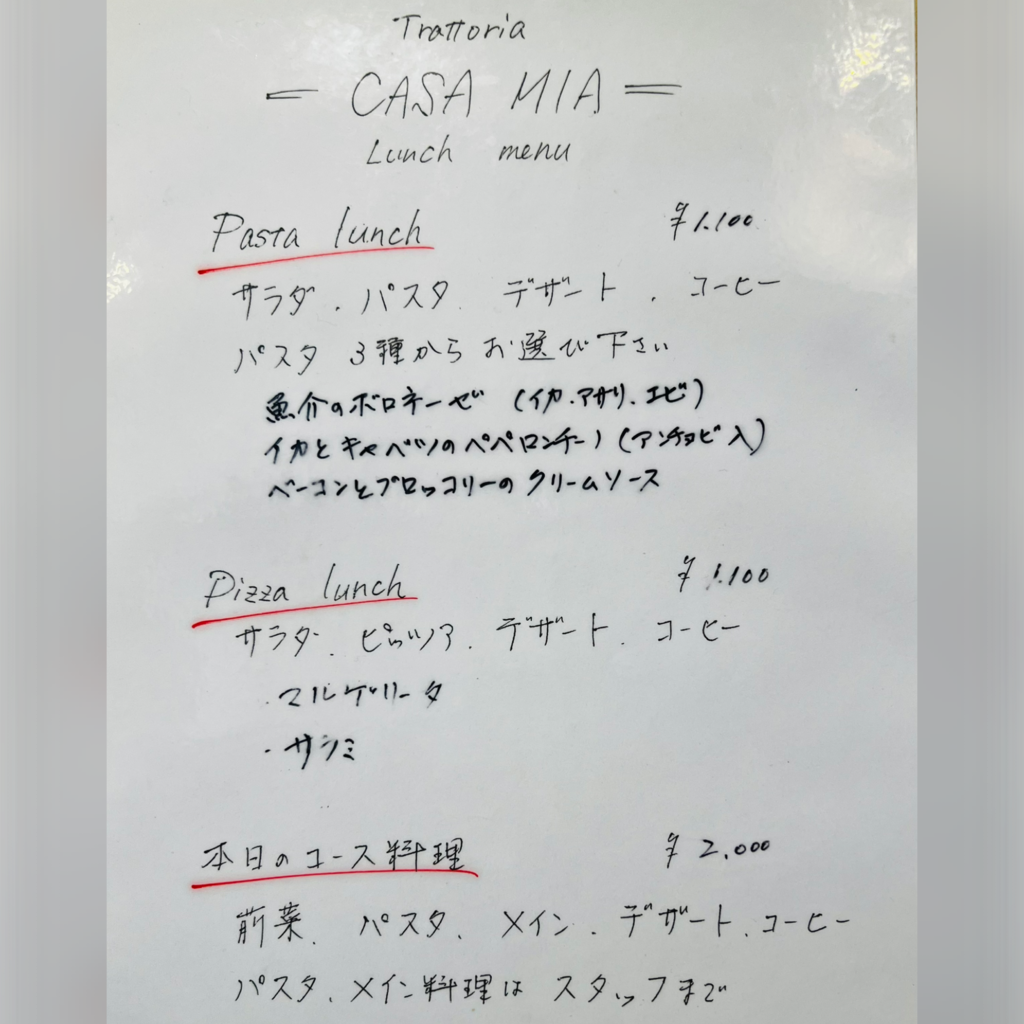 Trattoria
= CASA MIA =
Lunch menu
Pasta lunch ¥1.100
サラダ、パスタ、デザート、コーヒー
パスタ 3種からお選び下さい
魚介のボロネーゼ (イカ.アサリ.エビ)
イカとキャベツのペペロンチーノ(アンチョビ入)
ベーコンとブロッコリーのクリームソース
Pizza lunch ¥1.100
サラダ、ピッツア、デザート、コーヒー
・マルゲリータ
・サラミ
本日のコース料理 ¥2.000
前菜、パスタ、メイン、デザート、コーヒー
パスタ、メイン料理は スタッフまで